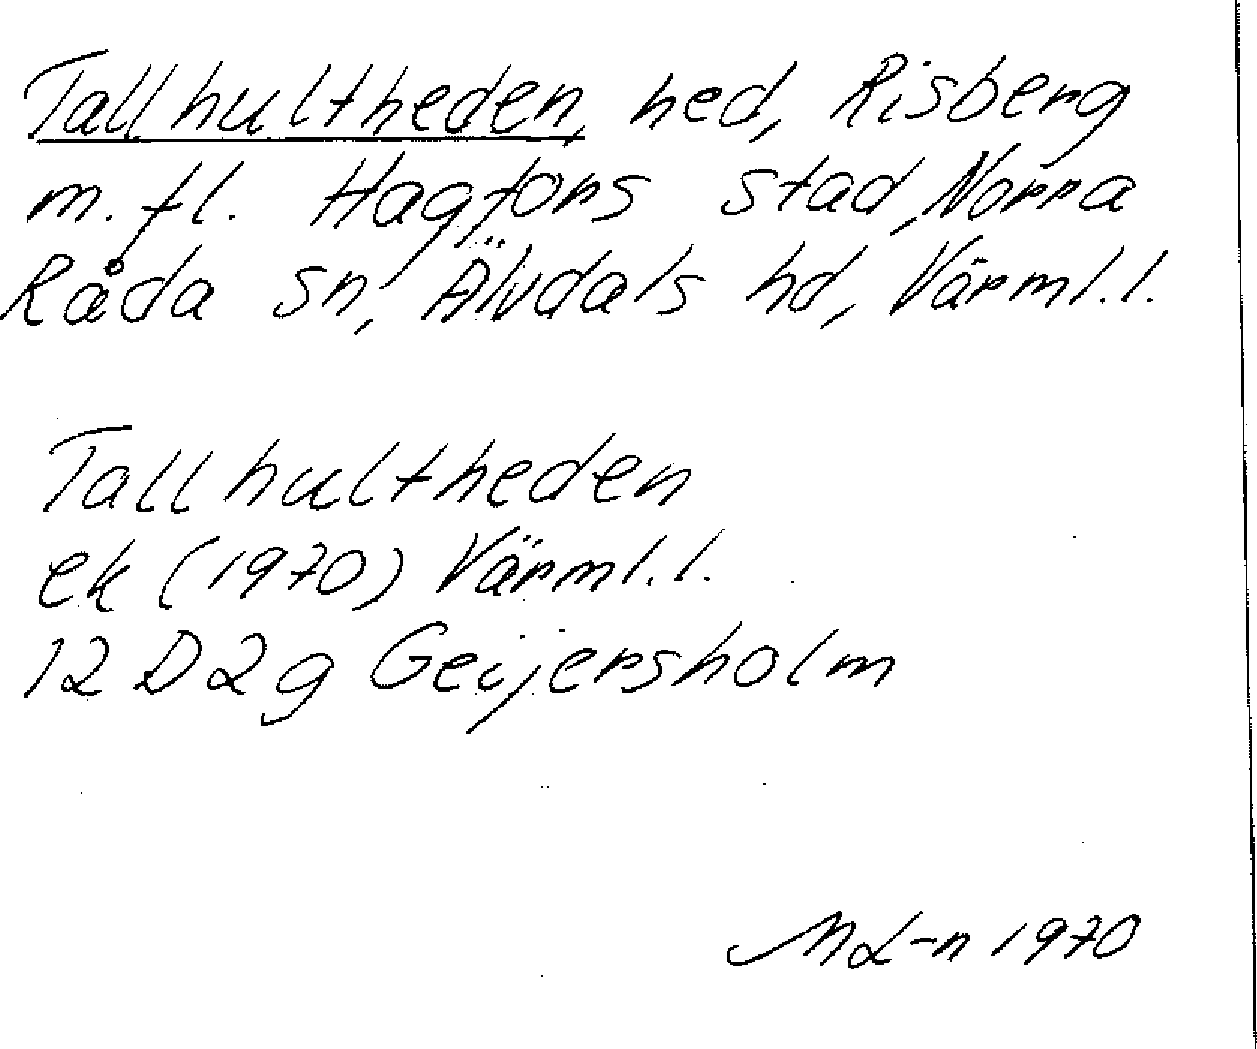 Tallhultheden, hed, Risberg
m.fl. Hagfors stad, Norra
Råda sn, Älvdals hd, Värml.l.
Tallhultheden
ek (1970) Värml.l.
12 D 2 g Geijersholm
ML-n 1970